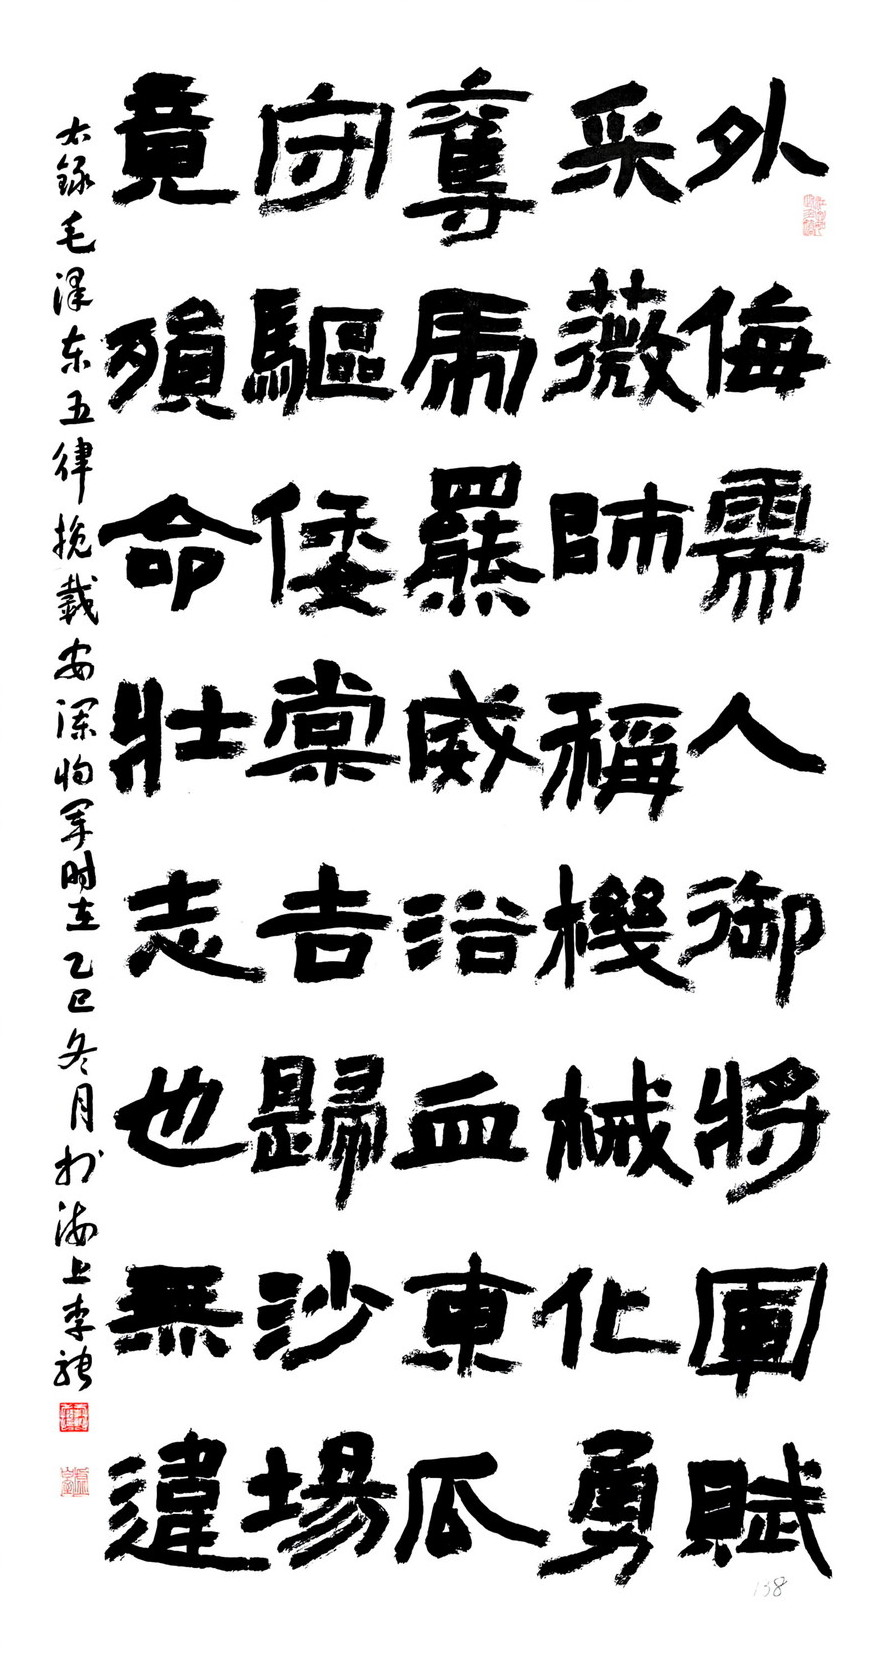 外侮需人御將軍賦
采薇師稱機械化勇
奪虎羆威浴血東瓜
守驅倭棠吉歸沙場
竟殞命壯志也無違
右錄毛澤东五律挽戴安澜将军时在乙巳冬月於海上李
138